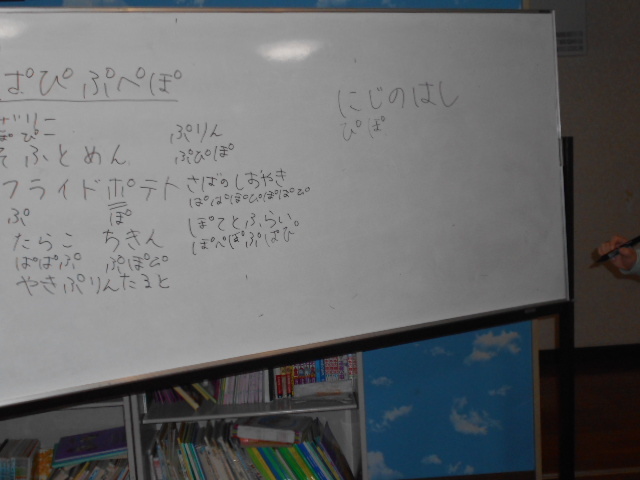 ぱぴぷぺぽ
ぜりー
ぽぴー
そふとめん
フライドポテト
ぷ ぽ
たらこ ちきん
ぱぱぷ ぷぽぴ
やきぷりんたまと
ぷりん
ぷぴぽ
さばのしおやき
ぽてとふらい
ぽぺぽぷぱぴ
にじのはし
ぴぽ